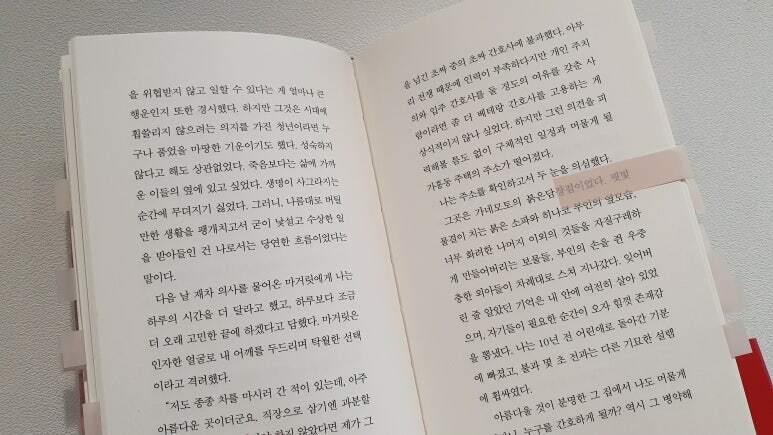 을 위협받지 않고 일할 수 있다는 게 얼마나 큰
행운인지 또한 경시했다. 하지만 그것은 시대에
휩쓸리지 않으려는 의지를 가진 청년이라면 누
구나 품었을 마땅한 기운이기도 했다. 성숙하지
않다고 해도 상관없었다. 죽음보다는 삶에 가까
운 이들의 옆에 있고 싶었다. 생명이 사그라지는
순간에 무뎌지기 싫었다. 그러니, 나름대로 버틸
만한 생활을 팽개치고서 굳이 낯설고 수상한 일
을 받아들인 건 나로서는 당연한 흐름이었다는
말이다.
다음 날 재차 의사를 물어온 마거릿에게 나는
하루의 시간을 더 달라고 했고, 하루보다 조금
더 오래 고민한 끝에 하겠다고 답했다. 마거릿은
인자한 얼굴로 내 어깨를 두드리며 탁월한 선택
이라고 격려했다.
“저도 종종 차를 마시러 간 적이 있는데, 아주
아름다운 곳이더군요. 직장으로 삼기엔 과분할
하지 않았다면 제가 그
을 넘긴 초짜 중의 초짜 간호사에 불과했다. 아무
리 전쟁 때문에 인력이 부족하다지만 개인 주치
의와 입주 간호사를 둘 정도의 여유를 갖춘 사
람이라면 좀 더 베테랑 간호사를 고용하는 게
상식적이지 않나 싶었다. 하지만 그런 의견을 피
력해볼 틈도 없이 구체적인 일정과 머물게 될
가흥동 주택의 주소가 떨어졌다.
나는 주소를 확인하고서 두 눈을 의심했다.
그곳은 가네모토의 붉은담장집이었다. 핏빛
물결이 치는 붉은 소파와 히나코 부인의 옆모습,
너무 화려한 나머지 이외의 것들을 자질구레하
게 만들어버리는 보물들, 부인의 손을 쥔 우중
충한 외아들이 차례대로 스쳐 지나갔다. 잊어버
린 줄 알았던 기억은 내 안에 여전히 살아 있었
으며, 자기들이 필요한 순간이 오자 힘껏 존재감
을 뽐냈다. 나는 10년 전 어린애로 돌아간 기분
에 빠졌고, 불과 몇 초 전과는 다른 기묘한 설렘
에 휩싸였다.
아름다울 것이 분명한 그 집에서 나도 머물게
누구를 간호하게 될까? 역시 그 병약해